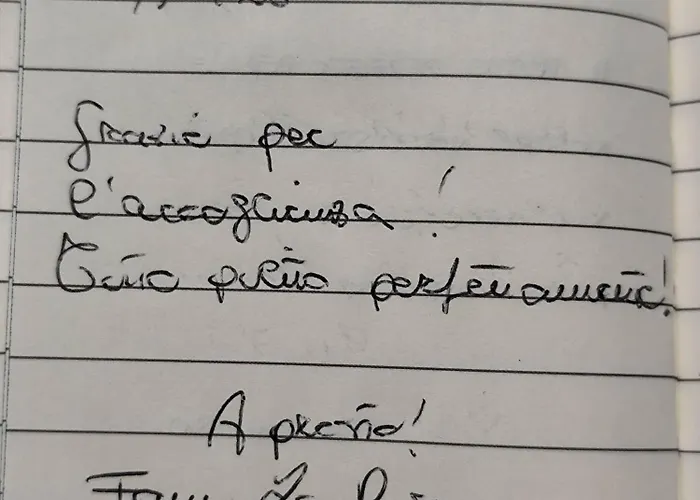 Grazie per
l'accoglienza!
Tutto pulito perfettamente!
A presto!